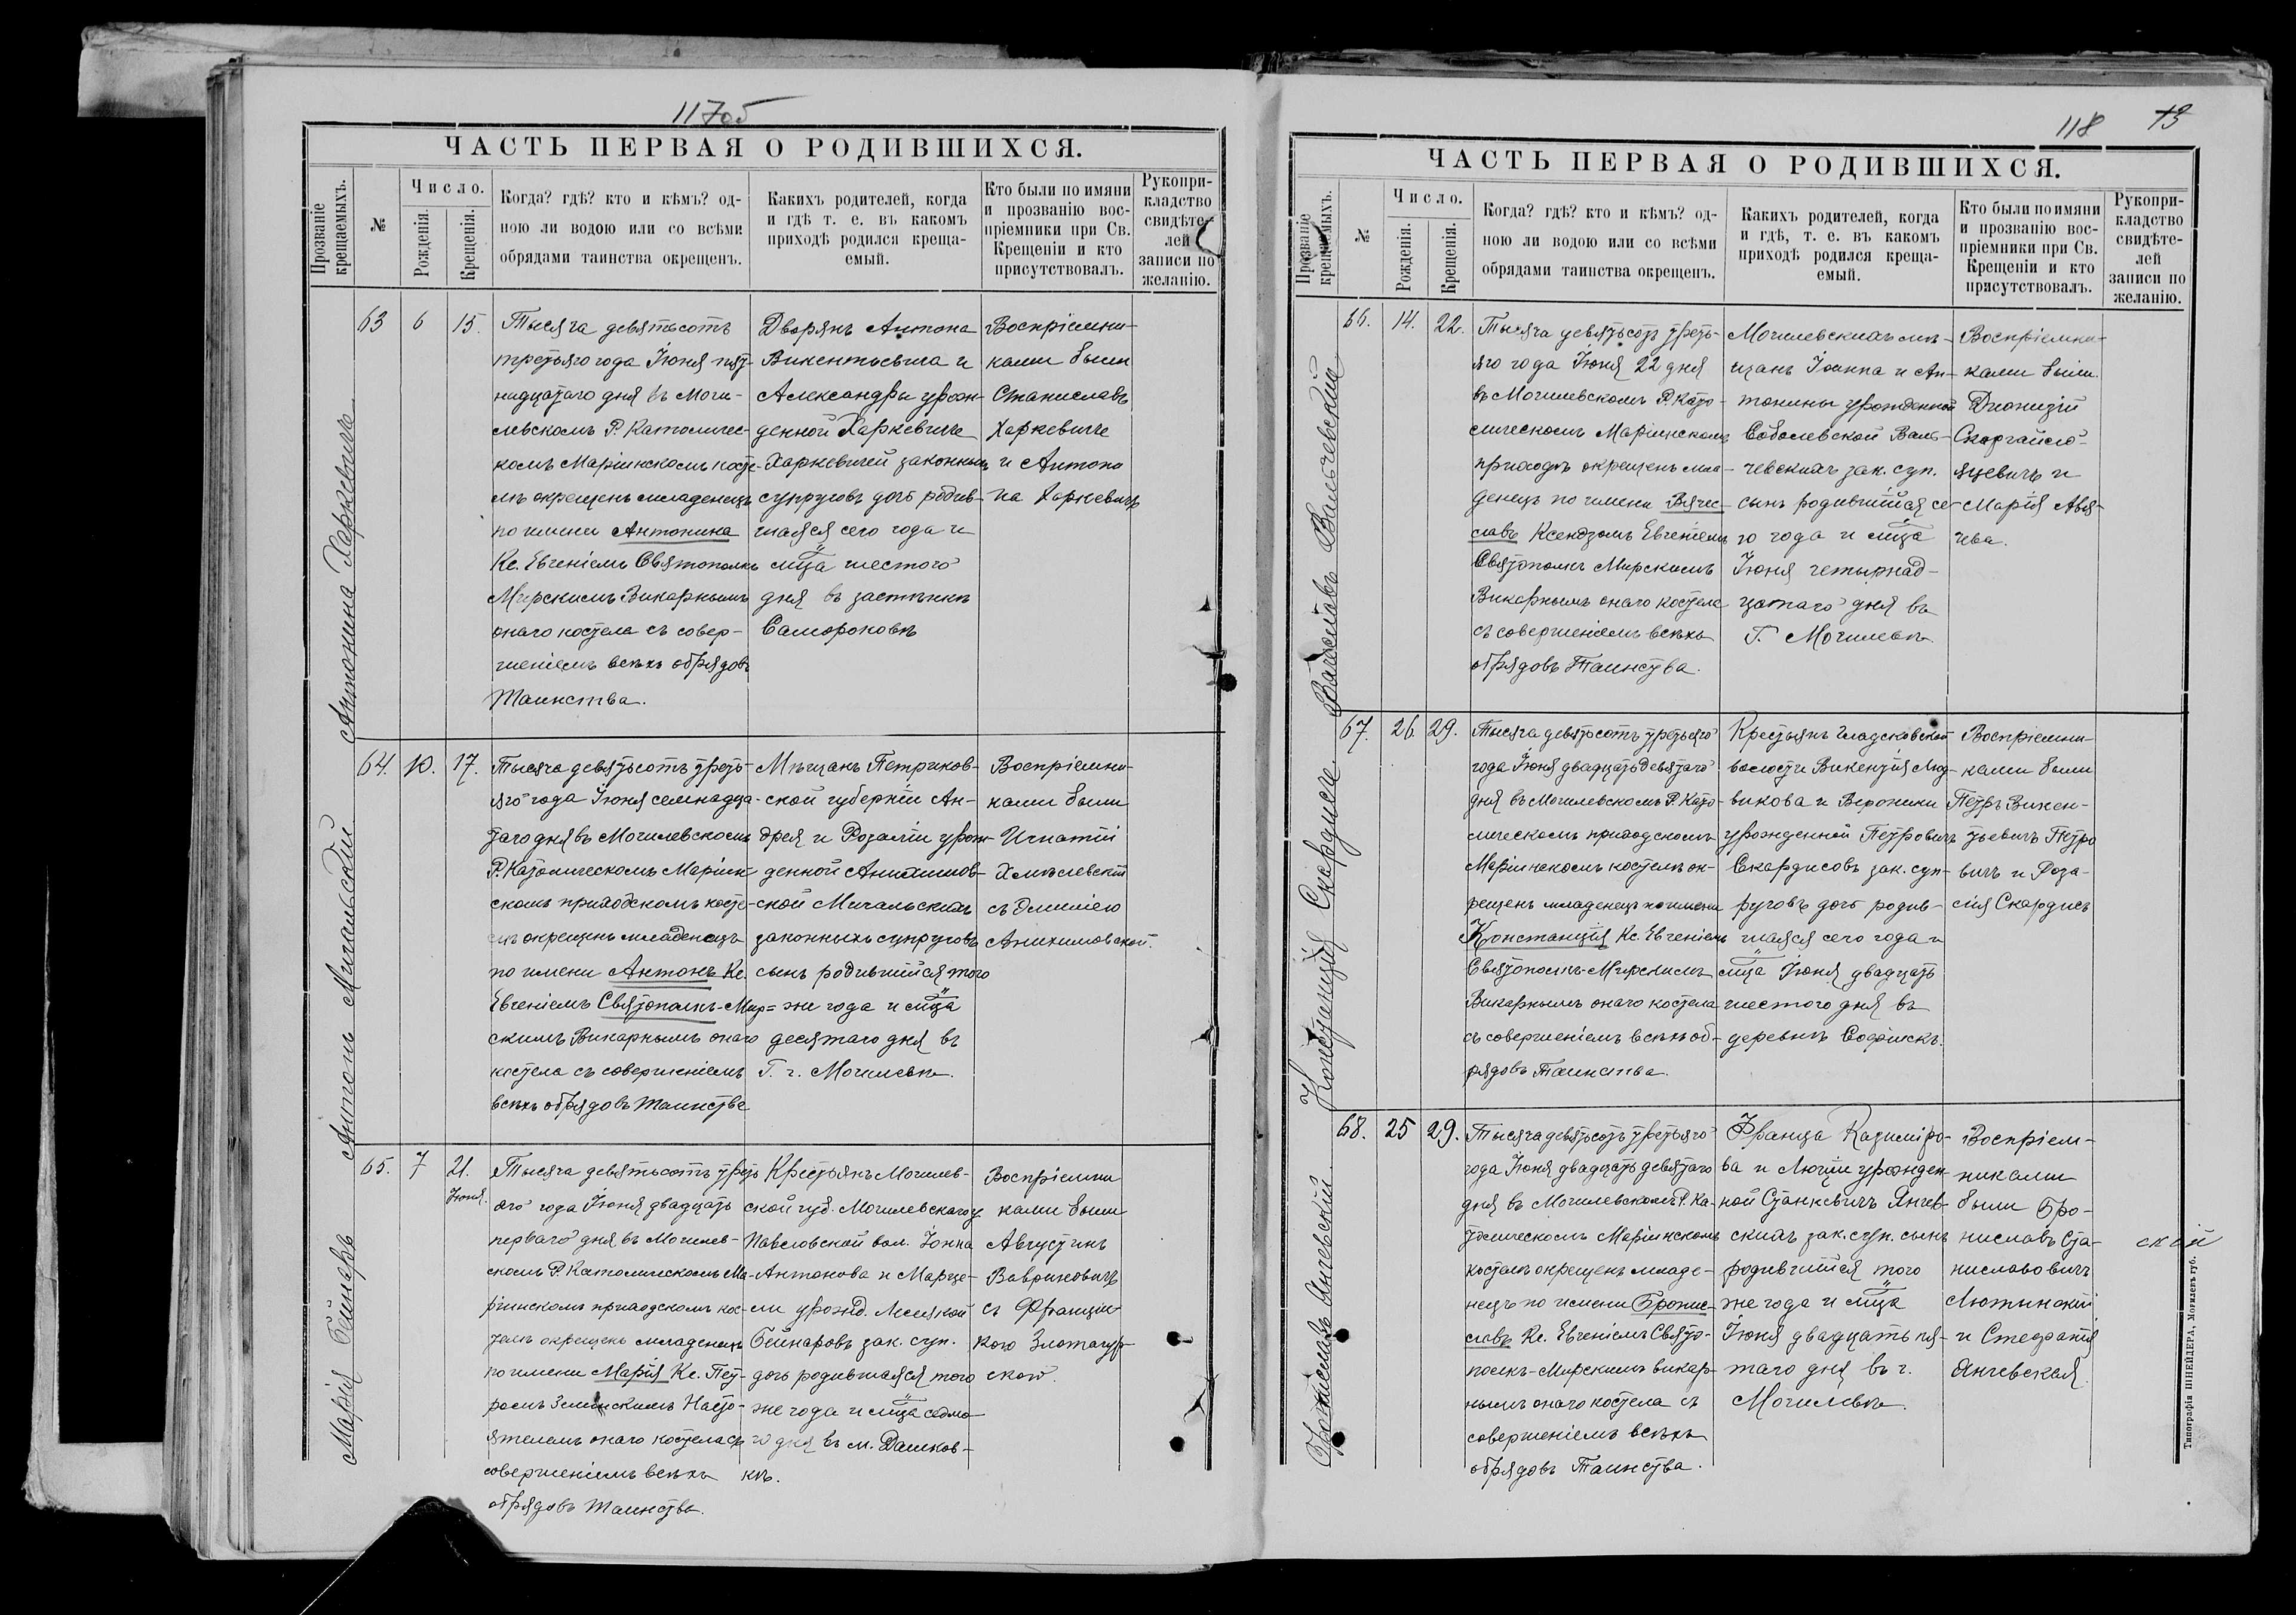 117об
ЧАСТЬ ПЕРВАЯ О РОДИВШИХСЯ.
Прозваніе крещаемыхъ.
№
Число.
Рожденія.
Крещенія.
Когда? гдѣ? кто и кѣмъ? од-
ною ли водою или со всѣми
обрядами таинства окрещенъ.
Какихъ родителей, когда
и гдѣ т. е. въ какомъ
приходѣ родился креща-
емый.
Кто были по имяни
и прозванію вос-
пріемники при Св.
Крещеніи и кто
присутствовалъ.
Рукопри-
кладство
свидѣте-
лей
записи по
желанію.
Антонина Харкевичъ
63
6
15.
Тысяча девятьсотъ
третьяго года Іюня пят-
надцатаго дня въ Моги-
левскомъ Р. Католичес-
комъ Маріинскомъ косте-
лѣ окрещенъ младенецъ
по имени Антонина
Кс. Евгеніемъ Святополкъ
Мирскимъ Викарнымъ
онаго костела съ совер-
шеніемъ всѣхъ обрядовъ
Таинства.
Дворянъ Антона
Викентьевича и
Александры урож-
денной Харкевичъ
Харкевичей законныхъ
супруговъ дочь родив-
шаяся сего года и
м̃ца шестого
дня въ застѣнкѣ
Самороковѣ
Воспріемни-
ками были
Станиславъ
Харкевичъ
и Антони
на Харкевичъ
Антонъ Мигальскій
64.
10.
17.
Тысяча девятьсотъ треть-
яго года Іюня семнадца-
таго дня въ Могилевскомъ
Р. Католическомъ Маріин-
скомъ приходскомъ косте-
лѣ окрещенъ младенецъ
по имени Антонъ Кс.
Евгеніемъ Святополкъ-Мир=
скимъ Викарнымъ онаго
костела съ совершеніемъ
всѣхъ обрядовъ таинства
Мѣщанъ Петриков-
ской губерніи Ан-
дрея и Розаліи урож-
денной Анихимов-
ской Мигальскихъ
законныхъ супруговъ
сынъ родившійся того
же года и м̃ца
десятаго дня въ
Г. г. Могилевѣ.
Воспріемни-
ками были
Игнатій
Хмѣлевскій
съ Эмиліею
Анихимовской.
Марія Бейнаръ
65.
7
21.
Іюня.
Тысяча девятьсотъ треть
яго года Іюня двадцать
перваго дня въ Могилев-
скомъ Р. Католическомъ Ма-
ріинскомъ приходскомъ кос-
телѣ окрещенъ младенецъ
по имени Марія Кс. Пет-
ромъ Насто-
ятелемъ онаго костела съ
совершеніемъ всѣхъ
обрядовъ Таинства.
Крестьянъ Могилев-
ской губ. Могилевскаго у.
Павловской вол. Іоана
Антонова и Марце-
ли урожд.
Бейнаровъ зак. суп.
дочь родившаяся того
же года и м̃ца седмо-
го дня въ м. Дашков-
кѣ.
Воспріемни
ками были
Августинъ
Вавриковичъ
съ Францин-
кою
ской.
118 13
ЧАСТЬ ПЕРВАЯ О РОДИВШИХСЯ.
Прозваніе крещаемыхъ.
№
Число.
Рожденія.
Крещенія.
Когда? гдѣ? кто и кѣмъ? од-
ною ли водою или со всѣми
обрядами таинства окрещенъ.
Какихъ родителей, когда
и гдѣ, т. е. въ какомъ
приходѣ родился креща-
емый.
Кто были по имяни
и прозванію вос-
пріемники при Св.
Крещеніи и кто
присутствовалъ.
Рукопри-
кладство
свидѣте-
лей
записи по
желанію.
Вальчевскій
66.
14.
22.
Тысяча девятьсотъ треть-
яго года Іюня 22 дня
въ Могилевскомъ Р. Като-
лическомъ Маріинскомъ
приходѣ окрещенъ мла-
денецъ по имени Вячес-
лавъ Ксендзомъ Евгеніемъ
Святополкъ Мирскимъ
Викарнымъ онаго костела
съ совершеніемъ всѣхъ
обрядовъ Таинства.
Могилевскихъ мѣ-
щанъ Іоанна и Ан-
тонины урожденной
Соболевской Валь-
чевскихъ зак. суп.
сынъ родившійся се-
го года и м̃ца
Іюня четырнад-
цатаго дня въ
Г. Могилевѣ
Воспріемни-
ками были
Діонизій
яцевичъ и
Марія
Констанція Скардисъ
67.
26.
29.
Тысяча девятьсотъ третьяго
года Іюня двадцать девятаго
дня въ Могилевскомъ Р. Като-
лическомъ приходскомъ
Маріинскомъ костелѣ ок-
рещенъ младенецъ по имени
Констанція Кс. Евгеніемъ
Святополкъ-Мирскимъ
Викарнымъ онаго костела
съ совершеніемъ всѣхъ об-
рядовъ Таинства.
Крестьянъ
волости Викентія Люд-
викова и Вероники
урожденной Петровичъ
Скардисовъ зак. суп-
руговъ дочь родив-
шаяся сего года и
м̃ца Іюня двадцать
шестого дня въ
деревнѣ Софіискъ.
Воспріемни-
ками были
Петръ Викен-
тьевичъ Петро
вичъ и Роза-
лія Скардисъ
Брониславъ Янчевскій
68.
25
29.
Тысяча девятьсотъ третьяго
года Іюня двадцать девятаго
дня въ Могилевскомъ Р. Ка-
толическомъ Маріинскомъ
костелѣ окрещенъ младе-
нецъ по имени Бронис-
лавъ Кс. Евгеніемъ Свято-
полкъ-Мирскимъ викар-
нымъ онаго костела съ
совершеніемъ всѣхъ
обрядовъ Таинства.
Франца Казиміро-
ва и Люціи урожден-
ной Станкевичъ Янчев-
скихъ зак. суп. сынъ
родившійся того
же года и м̃ца
Іюня двадцать пя-
таго дня въ г.
Могилевѣ.
Воспріем-
никами
были Бро-
ниславъ Ста-
ниславовичъ
Лютынскій
и Стефанія
Янчевская.
ской
Типографія ШНЕЙДЕРА, Могилевъ губ.